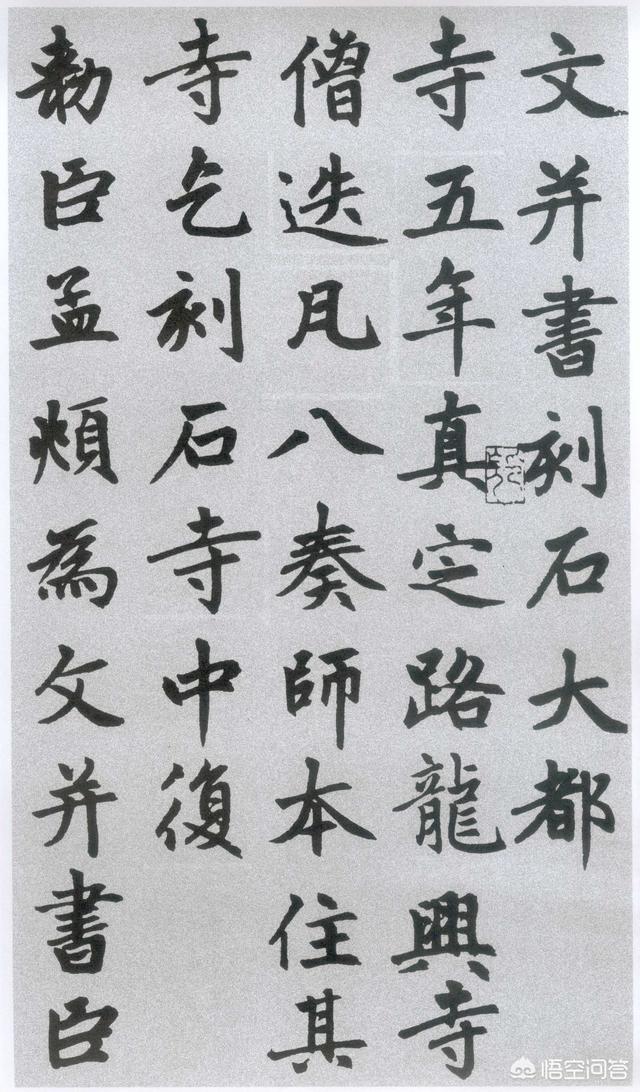 文并書刻石大都
寺五年真定路龍興寺
僧迭凡八奏師本住其
寺乞刻石寺中復
勅臣孟頫為文并書臣
悟空问答